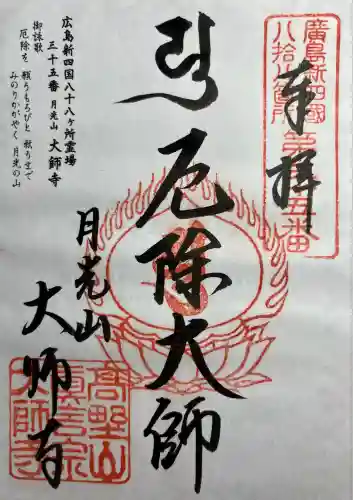 廣島新四國
八拾八箇所
第三十五番
奉拝
厄除大師
月光山
大師寺
高野山
真言宗
大師寺
広島新四国八十八ヶ所霊場
三十五番 月光山 大師寺
御詠歌
厄除を 願うもろびと
みのりかがやく 月光の山